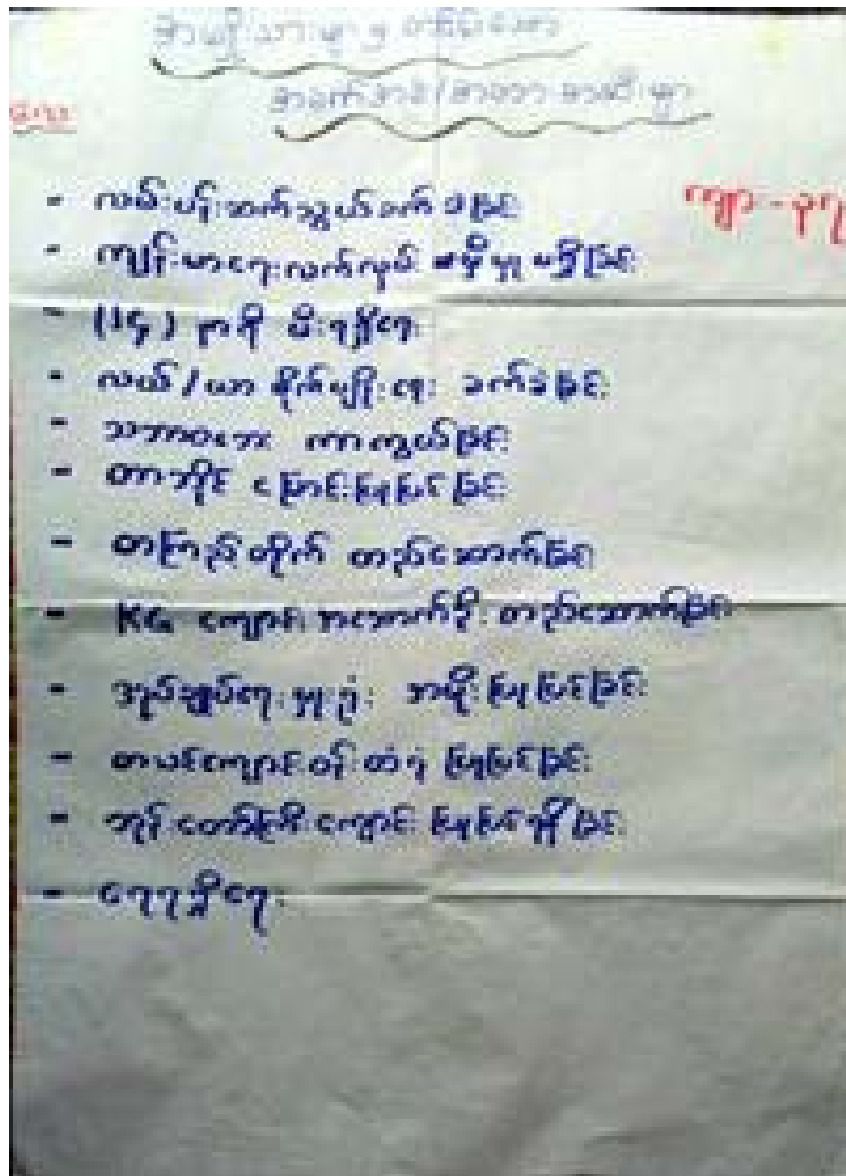 - လမ်းပန်းဆက်သွယ်ခက်ခဲခြင်း
- ကျန်းမာရေးလက်လှမ်း မမှီမှု မရှိခြင်း
- (၂၄) နာရီ မီးရရှိရေး
- လယ်/ယာ စိုက်ပျိုးရေး ခက်ခဲခြင်း
- သဘာဝဘေး ကာကွယ်ခြင်း
- တာဘိုင် ပြောင်းပြုပြင်ခြင်း
- စာကြည့်တိုက် တည်ဆောက်ခြင်း
- KG ကျောင်း အဆောက်ဦး တည်ဆောက်ခြင်း
- အုပ်ချုပ်ရေးမှူးရုံး အမိုးပြုပြင်ခြင်း
- စာသင်ကျောင်းဝန်းထရံ ပြုပြင်ခြင်း
- ဘုန်းတော်ကြီးကျောင်း ပြုပြင်ရန်ရှိခြင်း
- ရေရရှိရေး